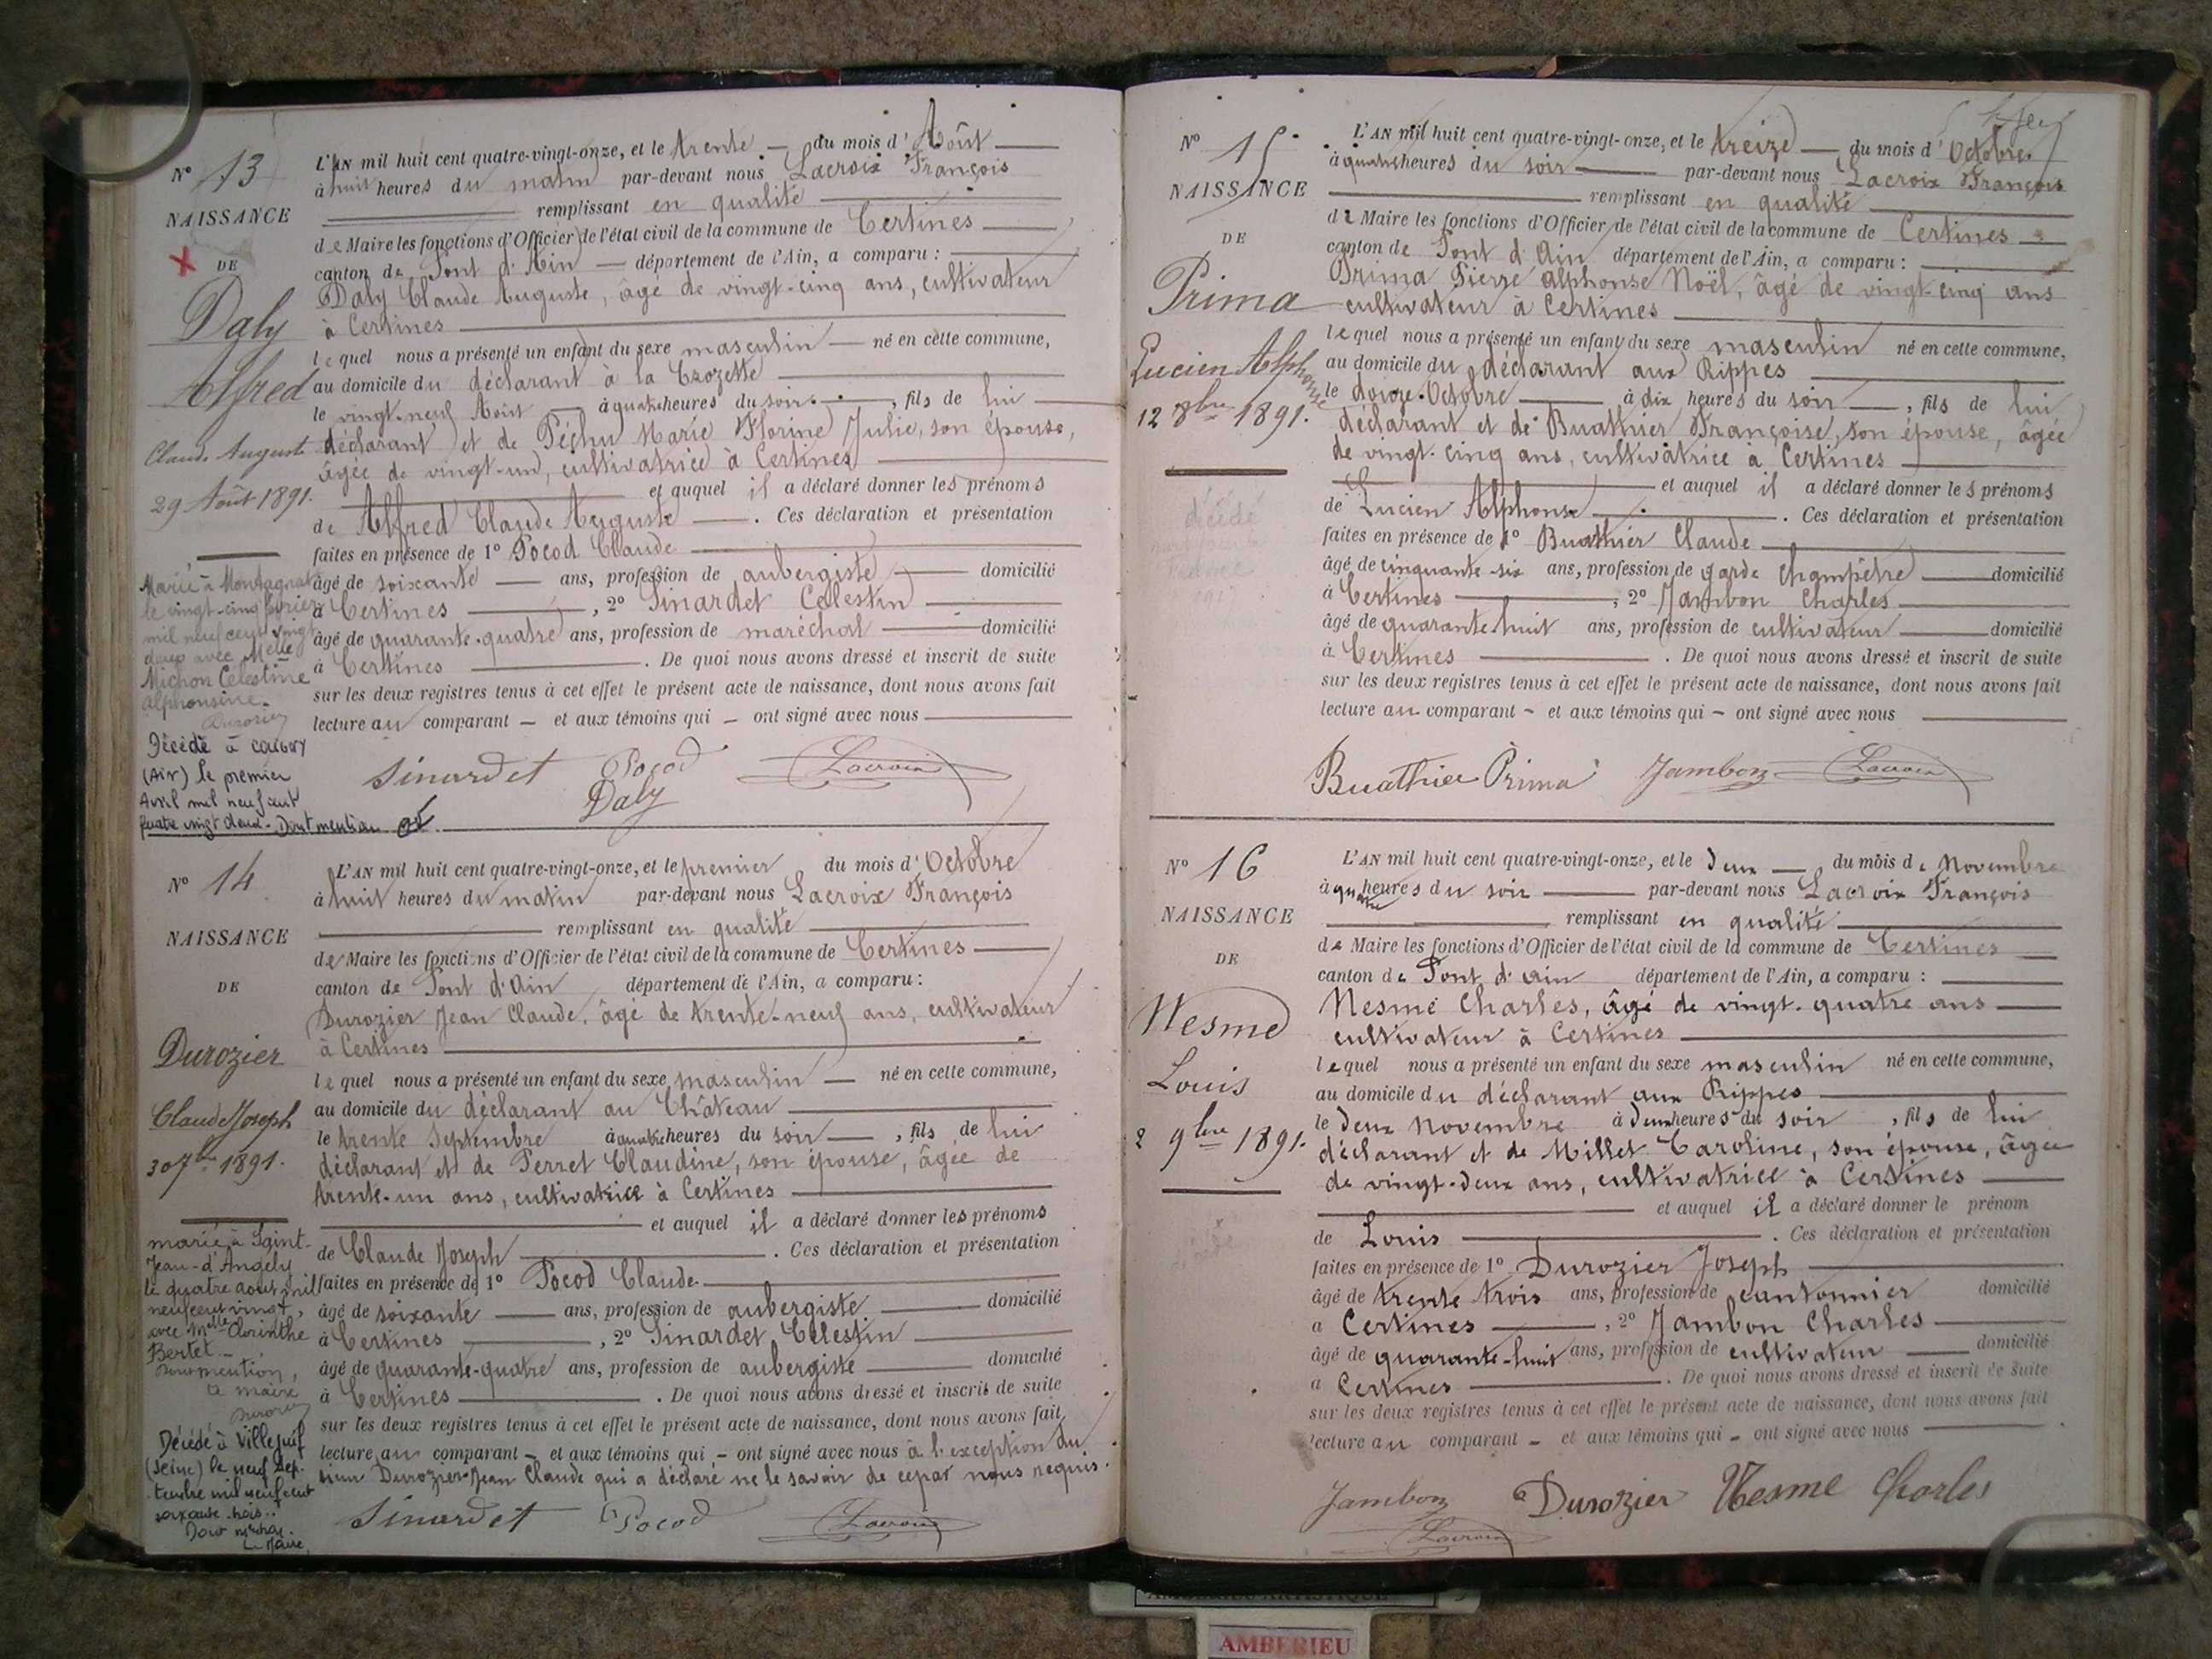 N° 13
NAISSANCE
DE
Daly
Alfred
Claude Auguste
29 Août 1891.
Marié à Montagnat
le vingt-cinq février
mil neuf cent vingt
deux avec Melle
Michon Célestine
Alphonsine.
Durozier
Décédé à
(Ain) le premier
Avril mil neuf cent
quatre vingt deux. Dont mention
L'AN mil huit cent quatre-vingt-onze, et le trente du mois d'Août
à huit heures du matin par-devant nous Lacroix François
remplissant en qualité
de Maire les fonctions d'Officier de l'état civil de la commune de Certines
canton de Pont d'Ain département de l'Ain, a comparu :
Daly Claude Auguste, âgé de vingt-cinq ans, cultivateur
à Certines
lequel nous a présenté un enfant du sexe masculin né en cette commune,
au domicile du déclarant à la Crozette
le vingt-neuf Août à quatre heures du soir, fils de lui
déclarant et de Péchu Marie Florine Julie, son épouse,
âgée de vingt-un, cultivatrice à Certines
et auquel il a déclaré donner les prénoms
de Alfred Claude Auguste. Ces déclaration et présentation
faites en présence de 1° Pocod Claude
âgé de soixante ans, profession de aubergiste domicilié
à Certines, 2° Sinardet Célestin
âgé de quarante-quatre ans, profession de maréchal domicilié
à Certines. De quoi nous avons dressé et inscrit de suite
sur les deux registres tenus à cet effet le présent acte de naissance, dont nous avons fait
lecture au comparant - et aux témoins qui - ont signé avec nous
Sinardet Pocod Lacroix
Daly
N° 14
NAISSANCE
DE
Durozier
Claude Joseph
30 7bre 1891.
marié à Saint-
Jean-d'Angély
le quatre août mil
neuf cent vingt,
avec Melle Corinthe
Bertet.
Dont mention,
Le maire
Durozier
Décédé à Villejuif
(Seine) le neuf sep-
tembre mil neuf cent
soixante-trois..
Dont mention.
Le Maire,
L'AN mil huit cent quatre-vingt-onze, et le premier du mois d'Octobre
à huit heures du matin par-devant nous Lacroix François
remplissant en qualité
de Maire les fonctions d'Officier de l'état civil de la commune de Certines
canton de Pont d'Ain département de l'Ain, a comparu :
Durozier Jean Claude, âgé de trente-neuf ans, cultivateur
à Certines
lequel nous a présenté un enfant du sexe masculin né en cette commune,
au domicile du déclarant au Château
le trente Septembre à quatre heures du soir, fils de lui
déclarant et de Perret Claudine, son épouse, âgée de
trente-un ans, cultivatrice à Certines
et auquel il a déclaré donner les prénoms
de Claude Joseph. Ces déclaration et présentation
faites en présence de 1° Pocod Claude
âgé de soixante ans, profession de aubergiste domicilié
à Certines, 2° Sinardet Célestin
âgé de quarante-quatre ans, profession de aubergiste domicilié
à Certines. De quoi nous avons dressé et inscrit de suite
sur les deux registres tenus à cet effet le présent acte de naissance, dont nous avons fait
lecture au comparant - et aux témoins qui - ont signé avec nous à l'exception du
sieur Durozier Jean Claude qui a déclaré ne le savoir de ce par nous requis.
Sinardet Pocod Lacroix
N° 15.
NAISSANCE
DE
Prima
Lucien Alphonse
12 8bre 1891.
décédé
L'AN mil huit cent quatre-vingt-onze, et le treize du mois d'Octobre
à quatre heures du soir par-devant nous Lacroix François
remplissant en qualité
de Maire les fonctions d'Officier de l'état civil de la commune de Certines
canton de Pont d'Ain département de l'Ain, a comparu :
Prima Pierre Alphonse Noël, âgé de vingt-cinq ans
cultivateur à Certines
lequel nous a présenté un enfant du sexe masculin né en cette commune,
au domicile du déclarant aux Rippes
le douze Octobre à dix heures du soir, fils de lui
déclarant et de Buathier Françoise, son épouse, âgée
de vingt-cinq ans, cultivatrice à Certines
et auquel il a déclaré donner les prénoms
de Lucien Alphonse. Ces déclaration et présentation
faites en présence de 1° Buathier Claude
âgé de cinquante-six ans, profession de garde champêtre domicilié
à Certines, 2° Jambon Charles
âgé de quarante-huit ans, profession de cultivateur domicilié
à Certines. De quoi nous avons dressé et inscrit de suite
sur les deux registres tenus à cet effet le présent acte de naissance, dont nous avons fait
lecture au comparant - et aux témoins qui - ont signé avec nous
Buathier Prima Jambon Lacroix
N° 16
NAISSANCE
DE
Nesme
Louis
2 9bre 1891.
L'AN mil huit cent quatre-vingt-onze, et le deux du mois de Novembre
à quatre heures du soir par-devant nous Lacroix François
remplissant en qualité
de Maire les fonctions d'Officier de l'état civil de la commune de Certines
canton de Pont d'Ain département de l'Ain, a comparu :
Nesme Charles, âgé de vingt-quatre ans
cultivateur à Certines
lequel nous a présenté un enfant du sexe masculin né en cette commune,
au domicile du déclarant aux Rippes
le deux Novembre à deux heures du soir, fils de lui
déclarant et de Millet Caroline, son épouse, âgée
de vingt-deux ans, cultivatrice à Certines
et auquel il a déclaré donner le prénom
de Louis. Ces déclaration et présentation
faites en présence de 1° Durozier Joseph
âgé de trente trois ans, profession de cantonnier domicilié
à Certines, 2° Jambon Charles
âgé de quarante-huit ans, profession de cultivateur domicilié
à Certines. De quoi nous avons dressé et inscrit de suite
sur les deux registres tenus à cet effet le présent acte de naissance, dont nous avons fait
lecture au comparant - et aux témoins qui - ont signé avec nous
Jambon Durozier Nesme Charles
Lacroix
AMBERIEU